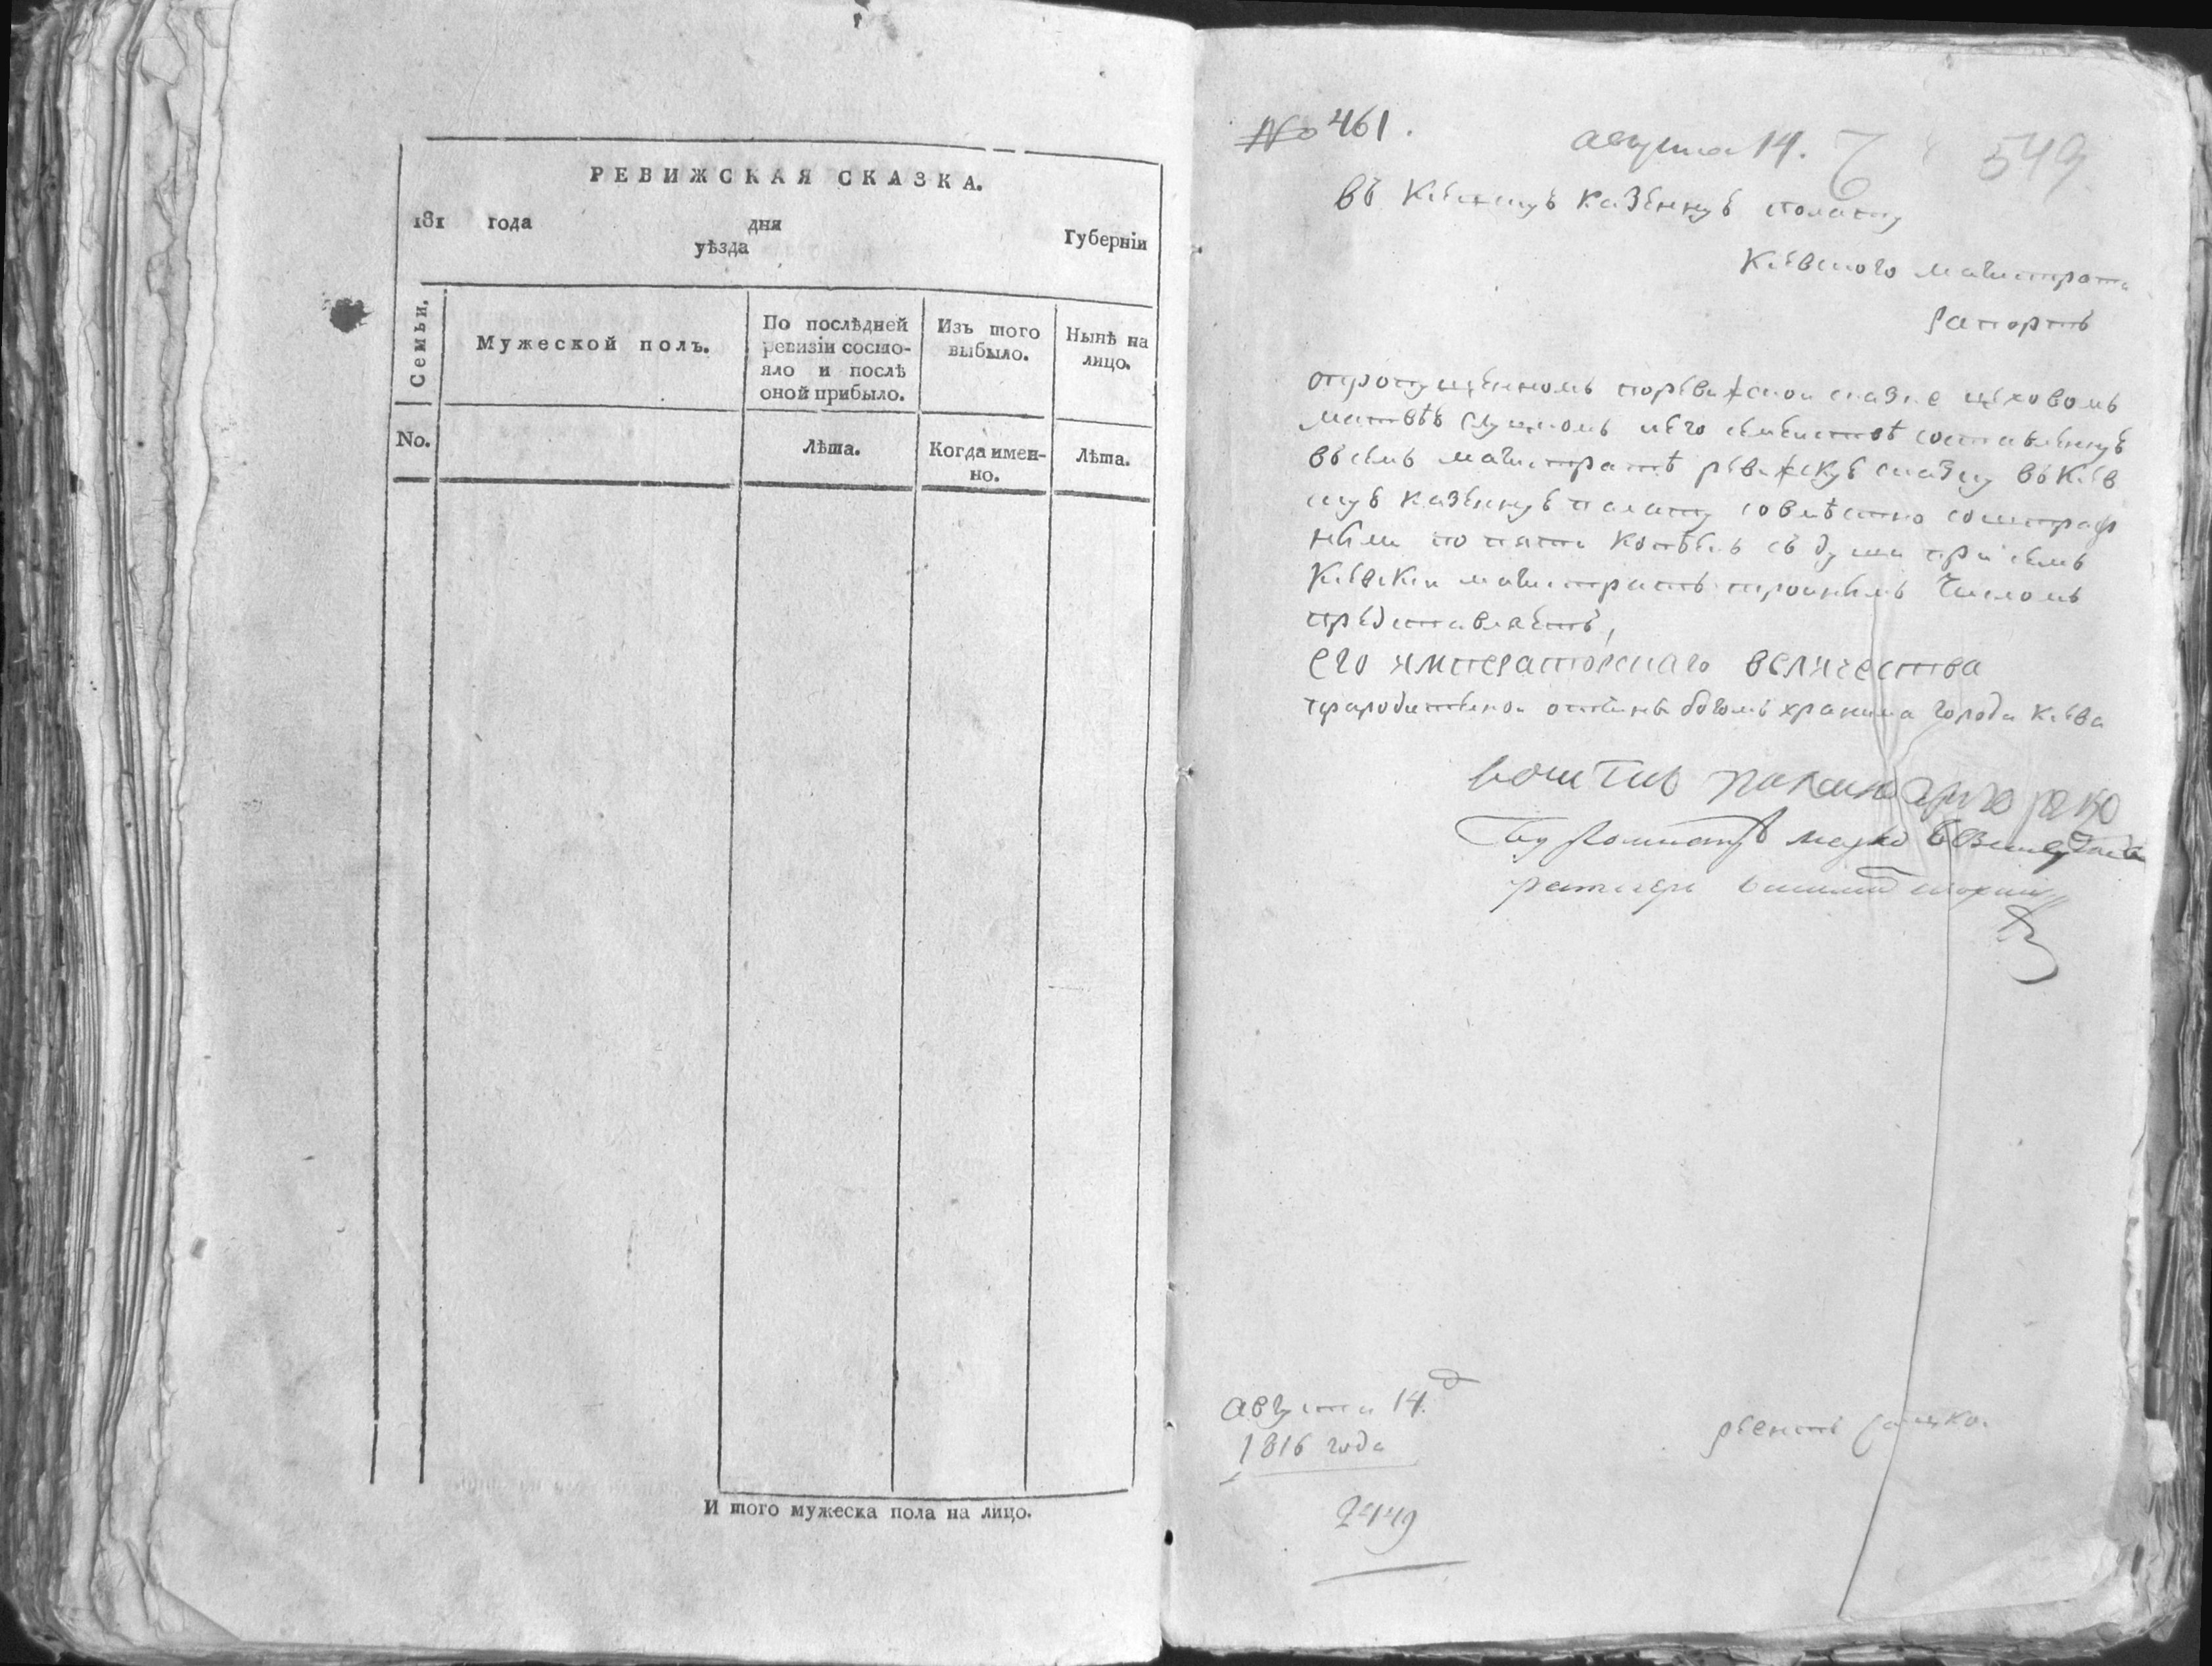 РЕВИЖСКАЯ СКАЗКА.
181 года дня
уѣзда Губерніи
Семьи.
Мужеской полъ.
По послѣдней
ревизіи состо-
яло и послѣ
оной прибыло.
Изъ того
выбыло.
Нынѣ на
лицо.
No.
Лѣта.
Когда имен-
но.
Лѣта.
И того мужеска пола на лицо.
No 461.
августа 14. 549
въ Кіевскую казенную полату
Кіевского магистрата
рапортъ
опропущенномъ поревижской сказке цеховомъ
матвѣе иего семействѣ составленную
въсемъ магистратѣ ревижскую сказку въ Кіев
скую казенную палату совмѣстно соштраф
ными по пяти копѣекъ съ души при семъ
Кіевски магистратъ троинымъ числомъ
представляетъ,
его императорскаго величества
прародителной отчины богомъ хранима города Кіева
войтъ
Бурмистръ
ратгеръ
августа 14. д
1816 года
2449